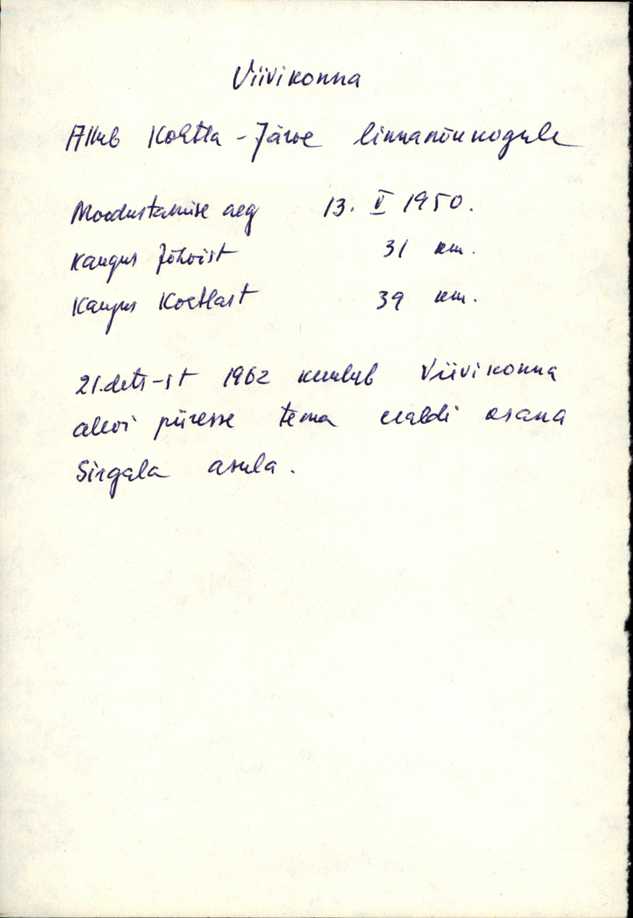 Viivikonna
Allub Kohtla-Järve linnanõukogule
Moodustamise aeg 13. V 1950.
Kaugus Jõhvist 31 km.
Kaugus Kohtlast 39 km.
21.dets-st 1962 kuulub Viivikonna
alevi piiresse tema eraldi osana
Sirgala asula.